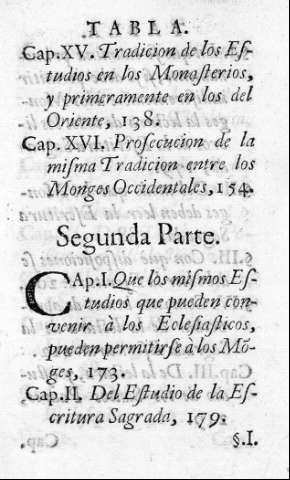 TABLA.
Cap.XV. Tradicion de los Eſ-
tudios en los Monaſterios,
y primeramente en los del
Oriente, 138.
Cap.XVI. Proſecucion de la
miſma Tradicion entre los
Monges Occidentales, 154.
Segunda Parte.
CAp.I. Que los miſmos Eſ-
tudios que pueden con-
venir à los Ecleſiaſticos,
pueden permitirſe à los Mõ-
ges, 173.
Cap.II. Del Eſtudio de la Eſ-
critura Sagrada, 179.
§.I.